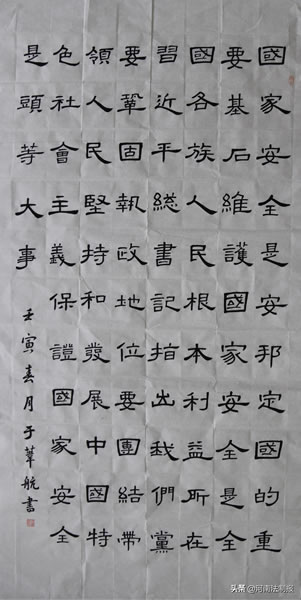 國家安全是安邦定國的重
要基石維護國家安全是全
國各族人民根本利益所在
習近平總書記指出我們黨
要鞏固執政地位要團結帶
領人民堅持和發展中國特
色社會主義保證國家安全
是頭等大事
壬寅春月于葦航書
头条 @河南法制报